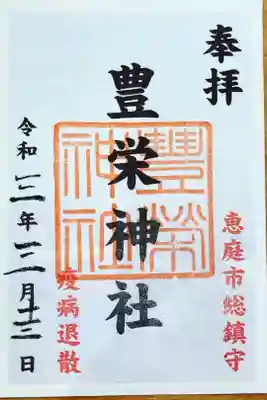 奉拝
恵庭市総鎮守
豊栄神社
豊榮神社
疫病退散
令和三年二月十三日